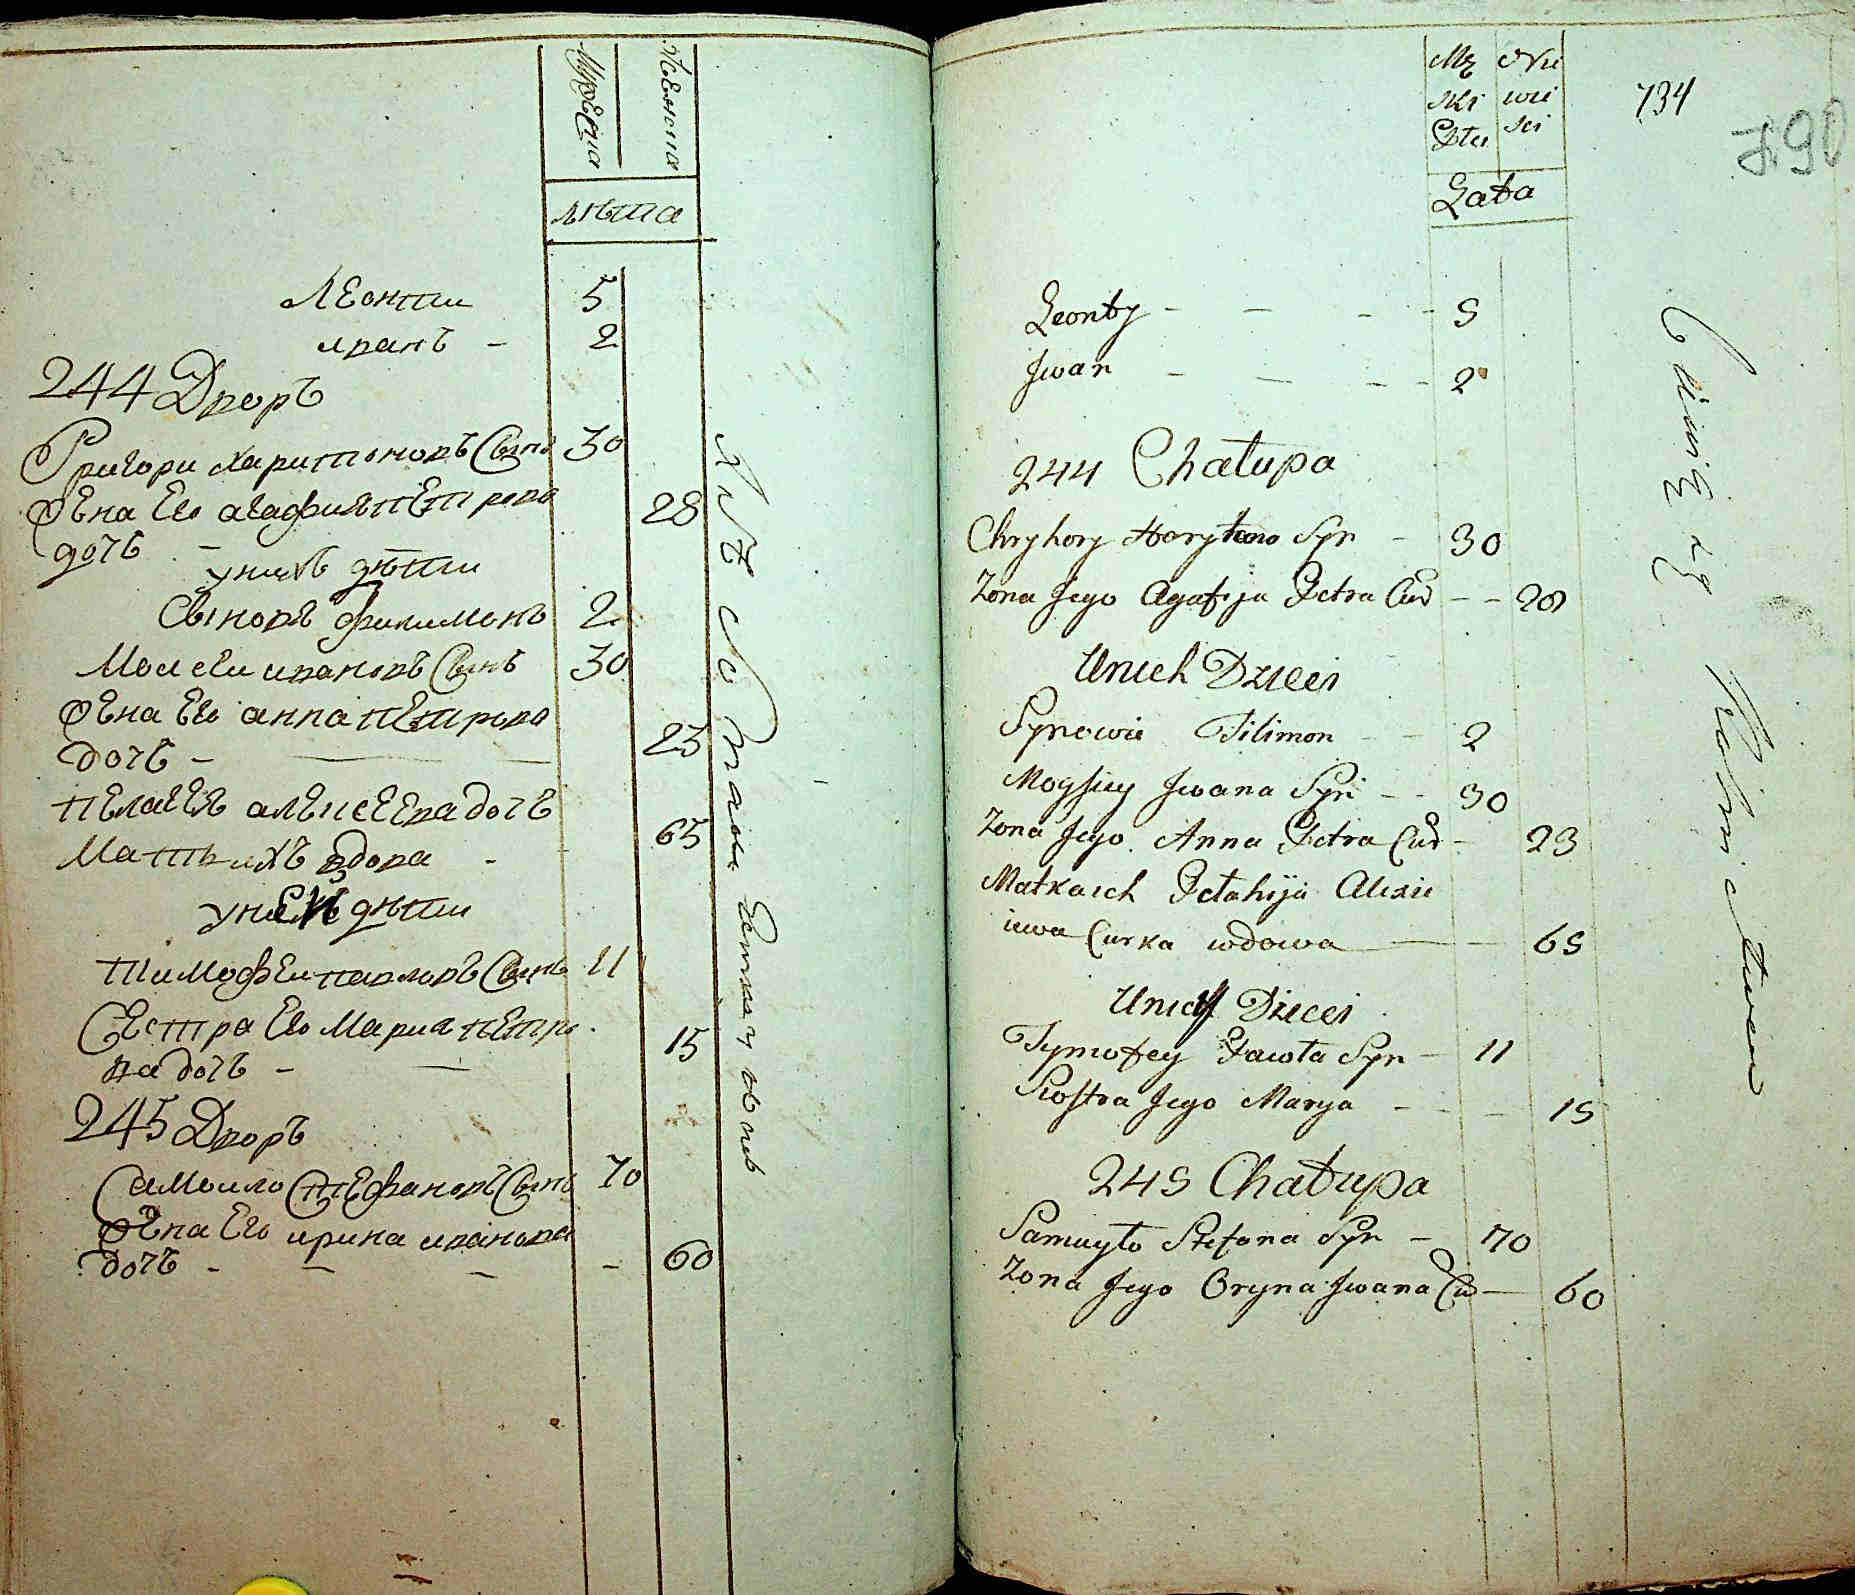 Мужеска
Женска
лѣта
Леонти 5
иванъ - 2
244 Дворъ
Григори харитоновъ Сынъ 30
Жена Его агафия пЕтрова 28
дочь -
у нихъ дѣти
Сыновъ филимонъ 2
Моисеи ивановъ Сынъ 30
Жена Его анна пЕтрова
дочь - 23
пЕлагЕя алЕксЕЕва дочь
Мать ихъ вдова - 65
у нЕй дѣти
тимофЕи павловъ Сынъ 11
СЕстра Его Мариа пЕтро
ва дочь - 15
245 Дворъ
Самоило СтЕфановъ Сынъ 70
Жена Его ирина иванова
дочь - - - - 60
Mę Nie
ski wie
Płci sci
Lata
734
790
Leonty - - - - 5
Jwan - - - - 2
244 Chałupa
Chryhory Haryтona Syn - 30
Żona Jego Agafija Petra Cur - - 28
Unich Dzieci
Synowie Filimon - - 2
Moysiey Jwana Syn - - 30
Żona Jego Anna Petra Cur - 23
Matka ich Pełahija Alexie
iewa Curka wdowa - 65
Unich Dzieci
Tymofey Pawła Syn - 11
Siostra Jego Marya - - - 15
245 Chałupa
Samuyło Stefana Syn - 70
Żona Jego Oryna Jwana Cur - 60